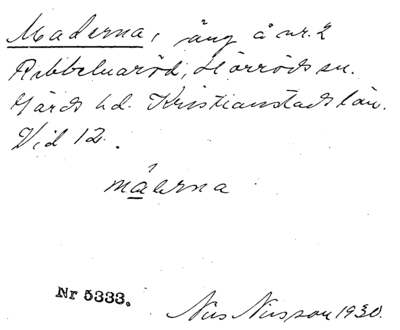 Maderna, äng å nr. 2
Ribbelunaröd, Hörröds sn.
Gärds hd. Kristianstads län.
Vid 12.
måerna
Nr 5333.
Nils Nilsson 1930.